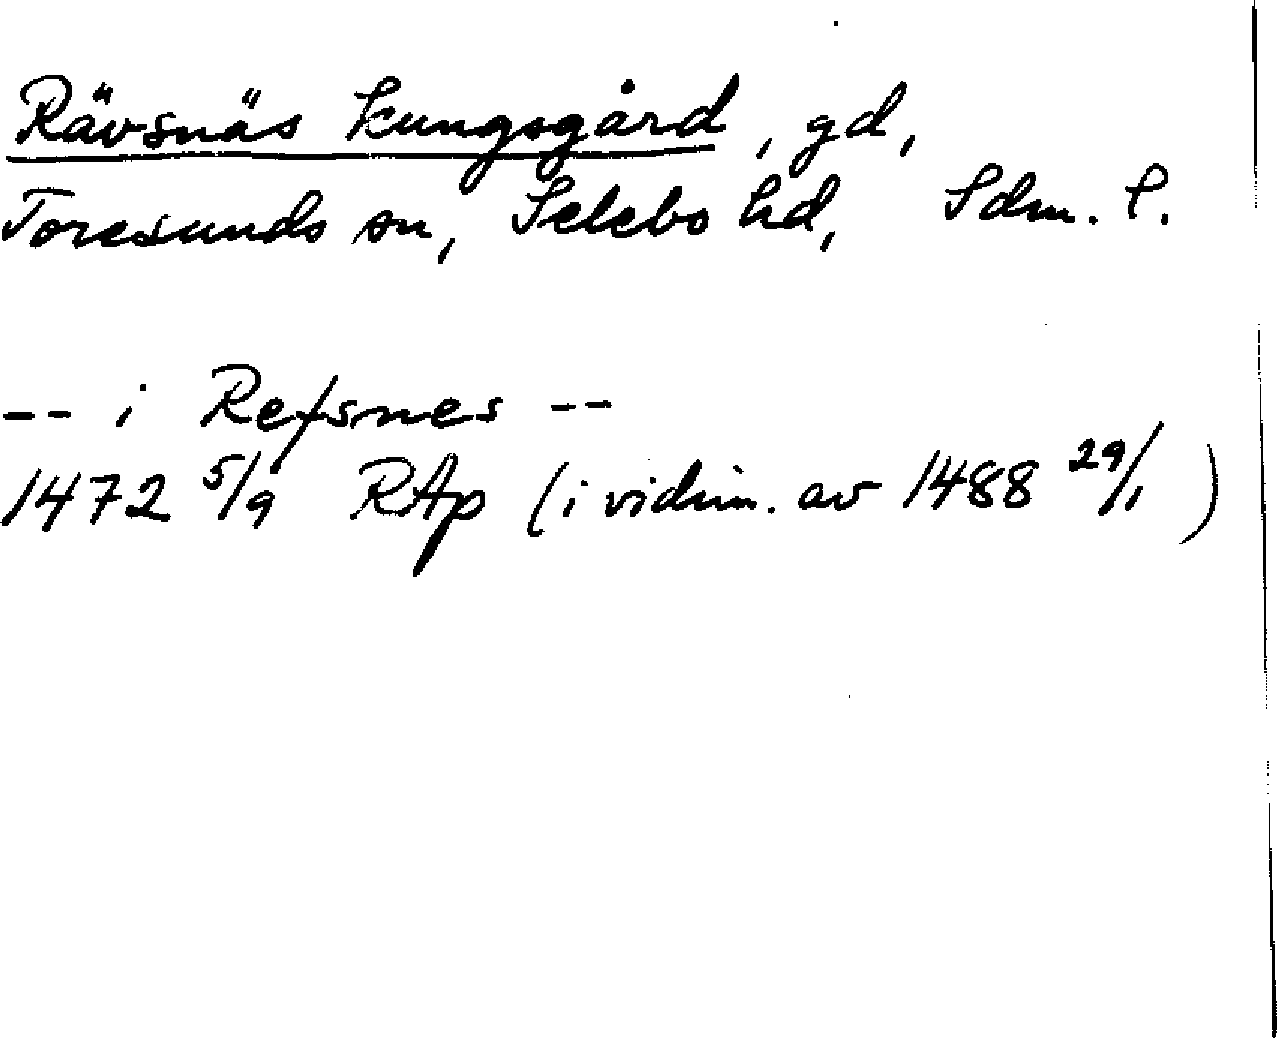 Rävsnäs kungsgård, gd,
Toresunds sn, Selebo hd, Sdm. l.
-- i Refsnes --
1472 5/9 RAp (i vidim. av 1488 29/1)